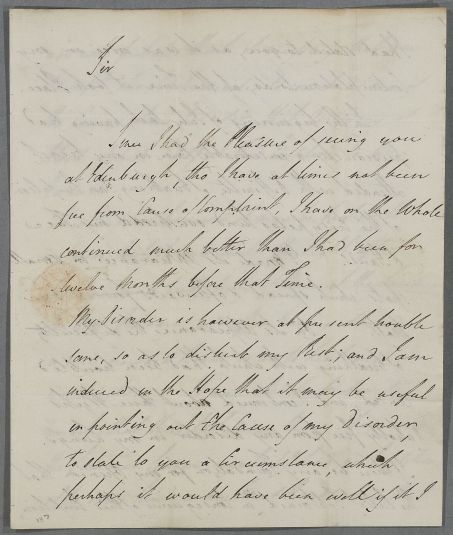 Sir
Since I had the Pleasure of seeing you
at Edinburgh, tho I have at times not been
free from Cause of Complaint, I have on the Whole
continued much better than I had been for
twelve Months before that Time.
My Disorder is however at present trouble
some, so as to disturb my Rest; and I am
induced in the Hope that it may be useful
in pointing out the Cause of my Disorder,
to state to you a Circumstance, which
perhaps it would have been well if I